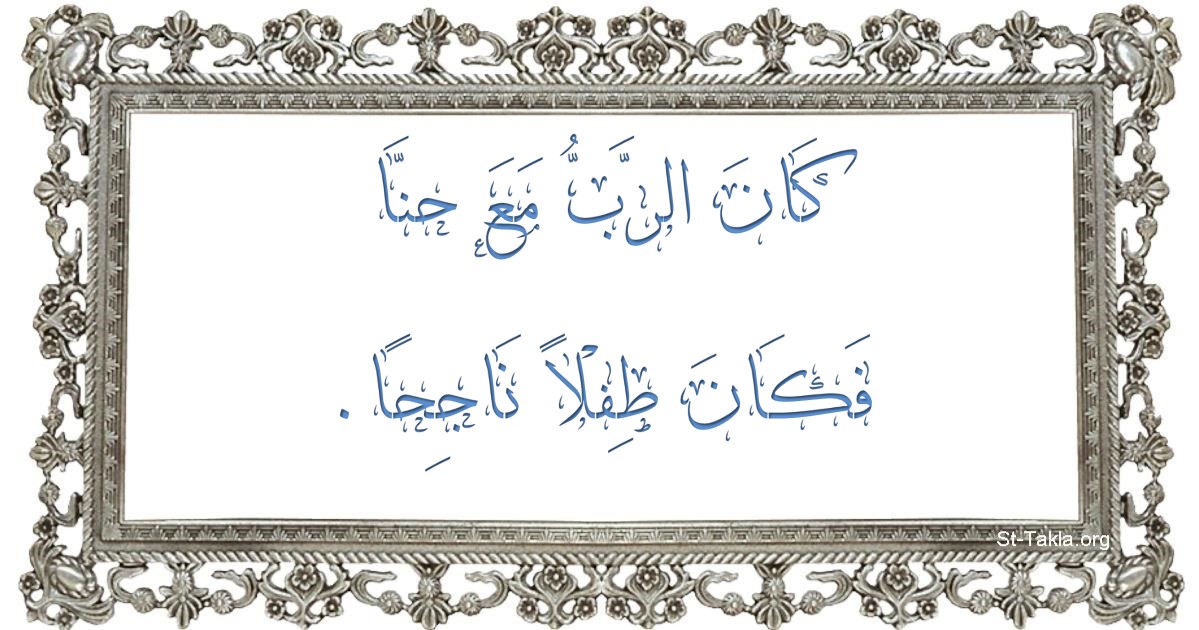 كَانَ الرَّبُّ مَعَ حنَّا
فَكَانَ طِفْلاً نَاجِحًا .
St-Takla.org